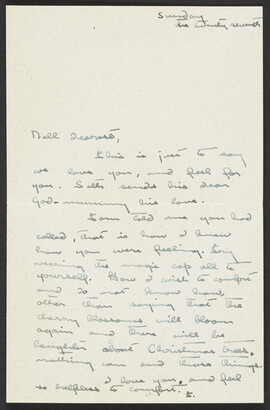 Sunday
the twenty seventh
Nell dearest,
This is just to say
we love you, and feel for
you. Sells sends his dear
God-mummy his love.
Sam told me you had
called, that is how I knew
how you were feeling.
wearing the magic cap all to
yourself. How I wish to comfort
and do not know how,
other than saying that the
cherry blossoms will bloom
again and there will be
laughter about Christmas trees.
nothing can end those things.
I love you, and feel
so helpless to comfort.